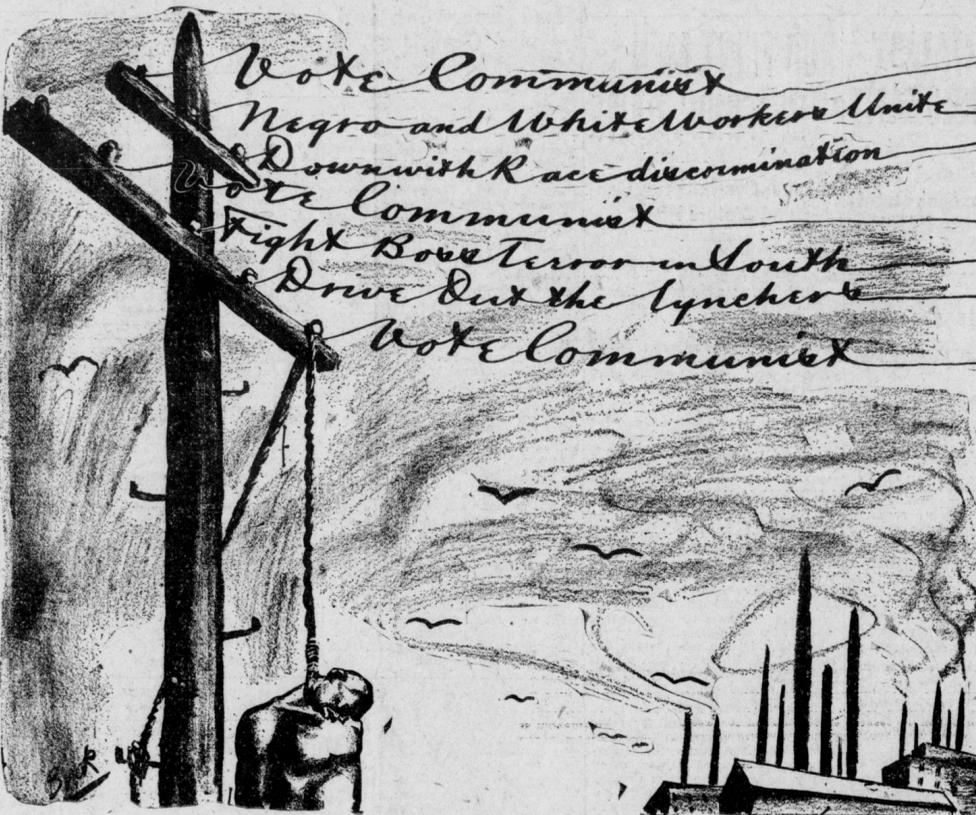 Vote Communist
Negro and White Workers Unite
Down with Race discrimination
Vote Communist
Fight Boss Terror in South
Drive Out the lynchers
Vote Communist